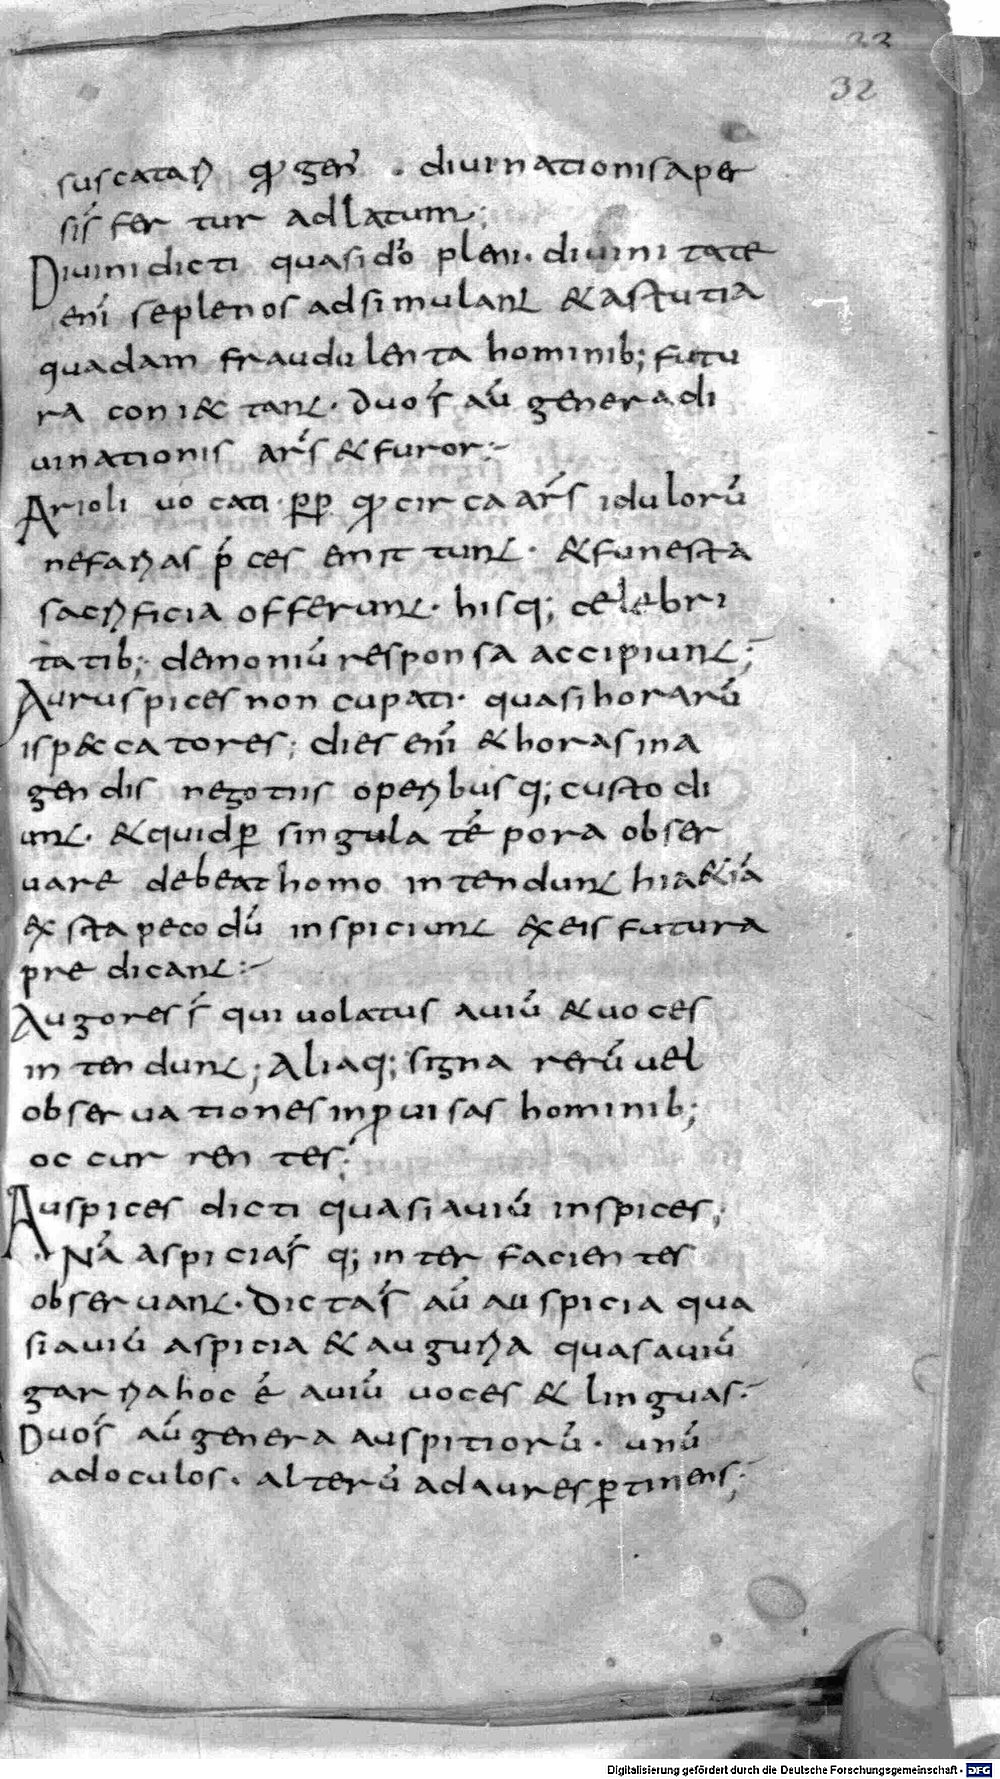 32
32
suscatari ꝙ gen̄ . diuinationisaper
sis̄ fertur adlatum;
Diuinidicti quasido̅ pleni. diuinitate
eni̅ seplenos adsimulant &astutia
quadam fraudulenta hominib; futu
ra coni&tant. Duos̄ au̅ generadi
uinationis ars̄ &furor:~
Arioli uocati. ꝓꝑ ꝙ circa ars̄ iduloru̅
nefarias p̅ces emittunt. &funesta
sacrificia offerunt. hisq; celebri
tatib; demoniu̅responsa accipiunt;
Auruspices non cupati. quasi horaru̅
isp&catores; dies eni̅ &horasina
gendis negotiis operibusq; custodi
unt. &quidꝑ singula te̅pora obser
uare debeat homo intendunt hia&ia̅
exsta pecodu̅ inspiciunt exeis futura
predicant:~
Augores s̄ qui uolatus auiu̅ &uoces
intendunt; Aliaq; signa reru̅ uel
obseruationes inꝓuisas hominib;
occurrentes;
Auspices dicti quasi auiu̅ inspices;
. Na̅ aspicias̄ q; inter facientes
obseruant. Dictas̄ au̅ auspicia qua
siauiu̅ aspicia & auguria quasauiu̅
garriahoc e̅ auiu̅ uoces & linguas.
Duos̄ au̅ genera auspitioru̅. unu̅
adoculos. alteru̅ adaures ꝑtinens;
Digitalisierung gefördert durch die Deutsche Forschungsgemeinschaft - DFG